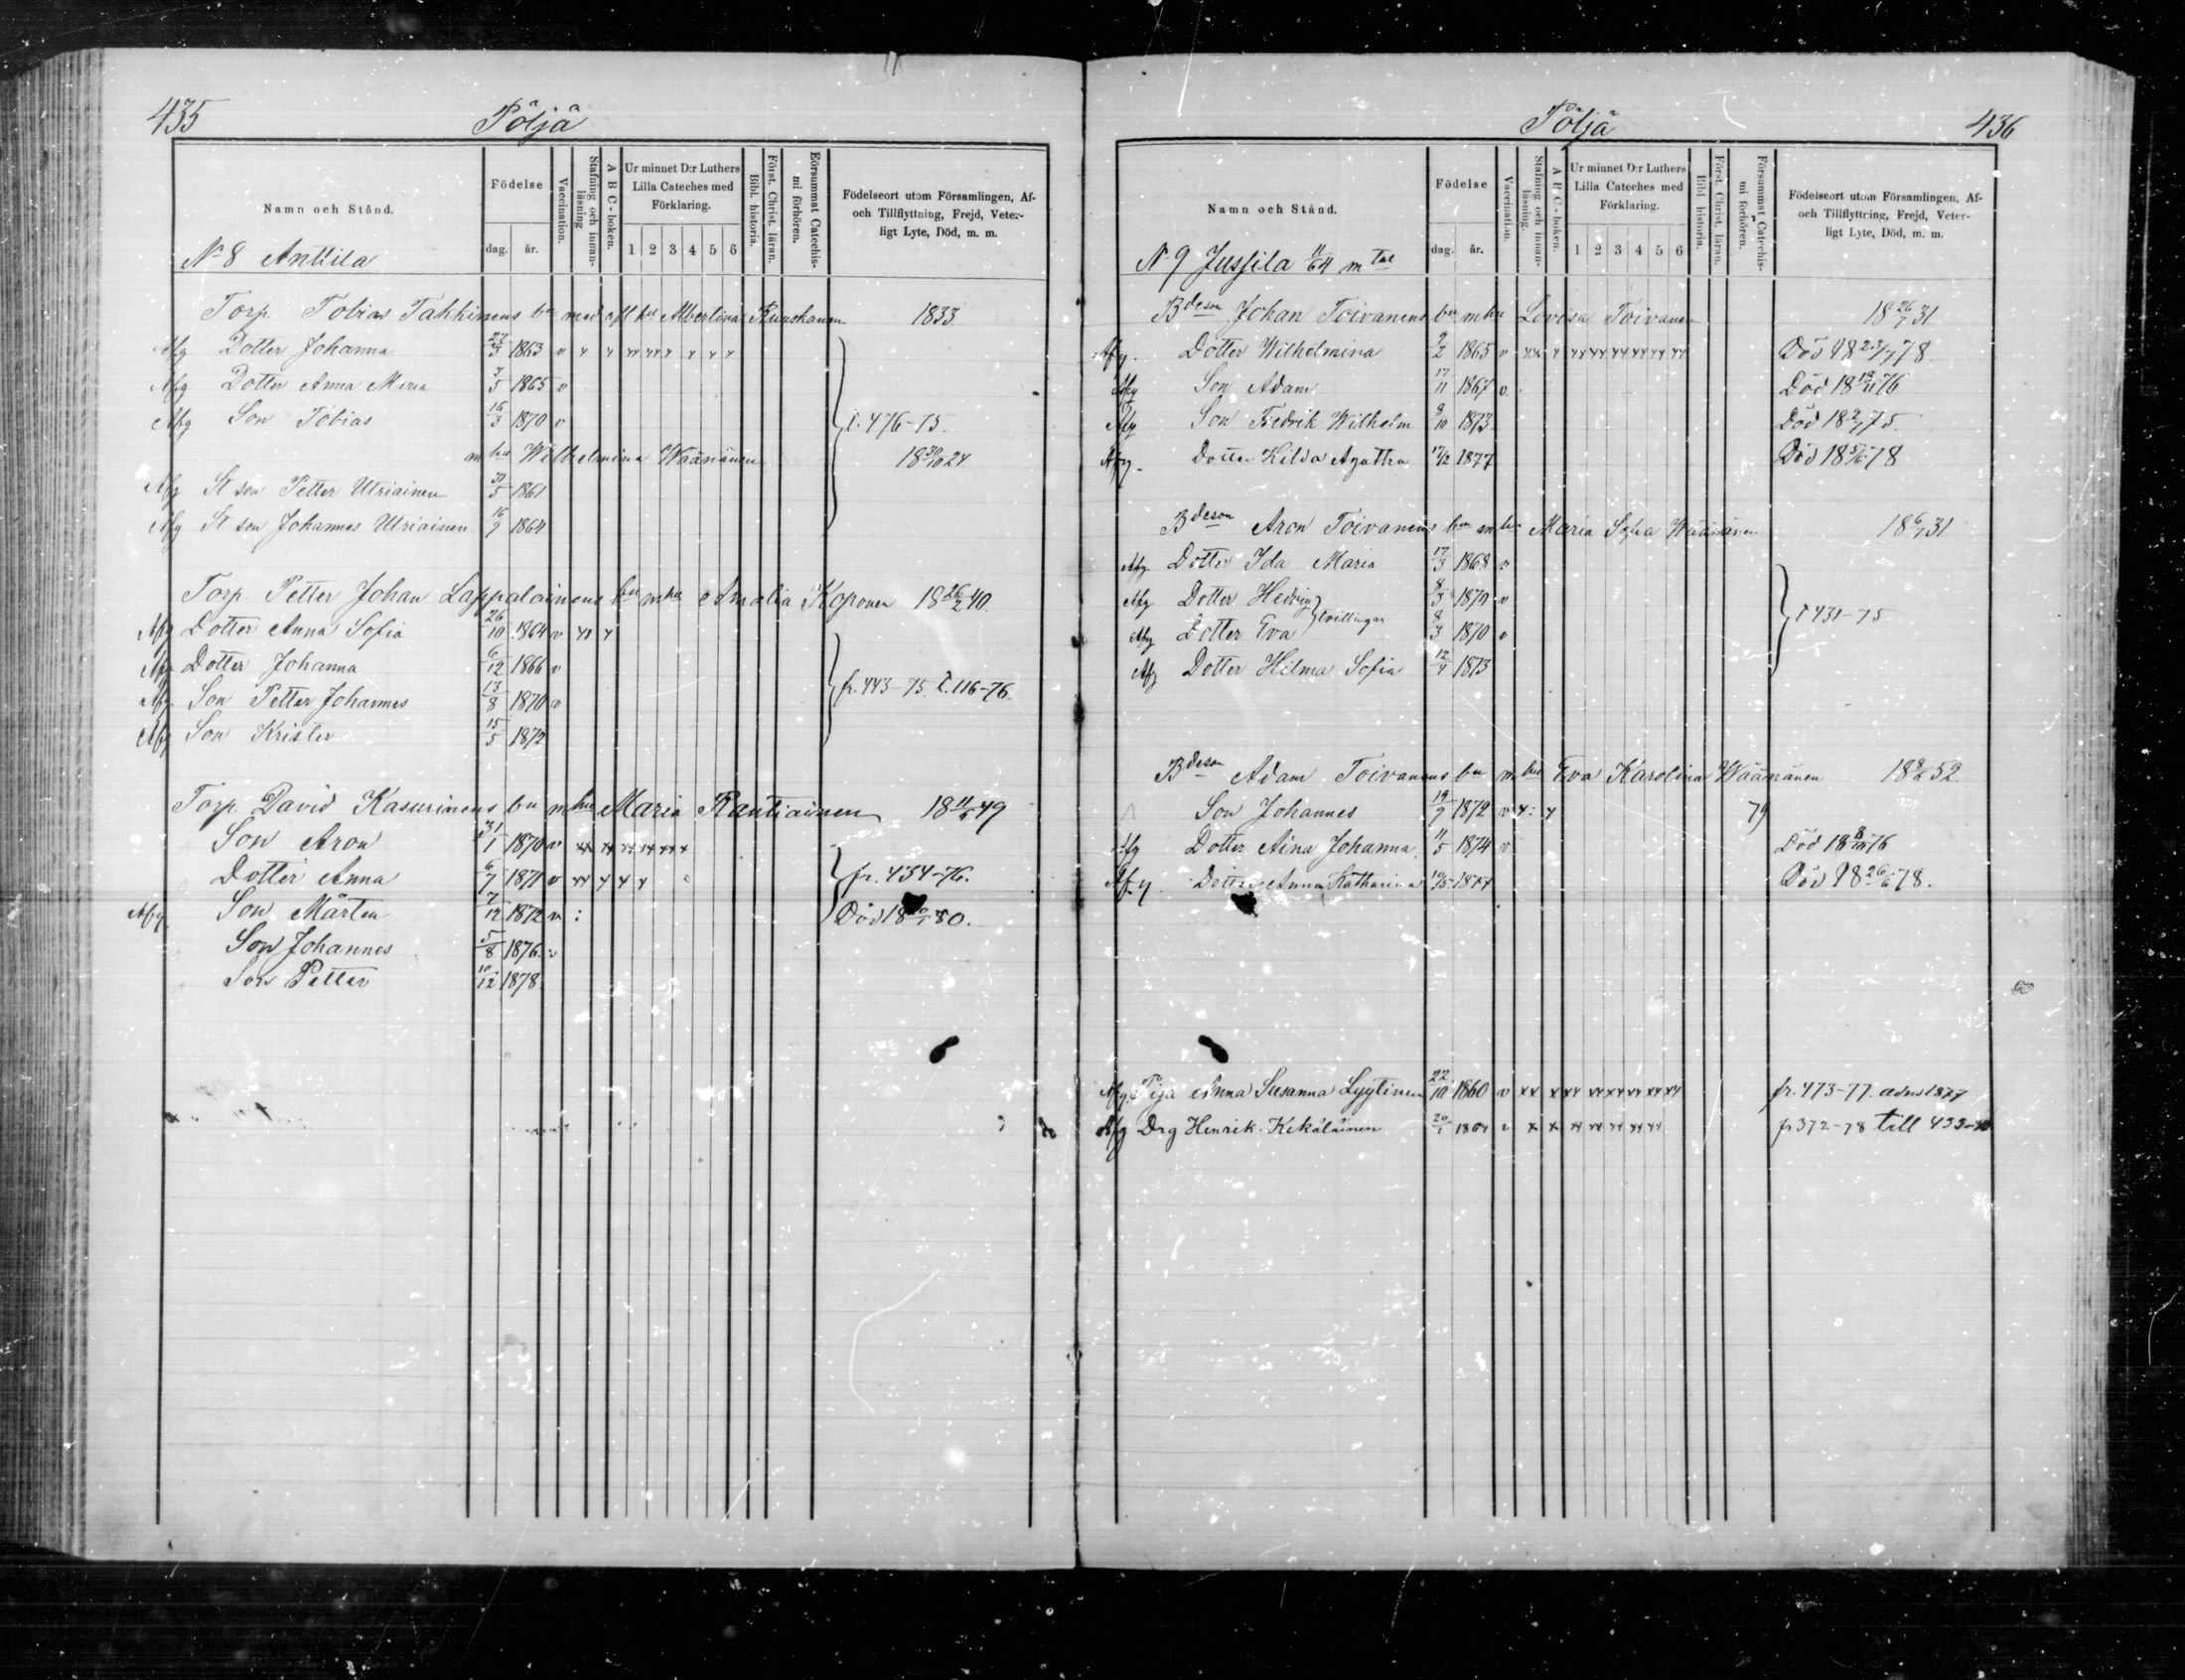 435
Pöljä
Namn och Stånd.
Födelse
dag.
år.
Vaccination.
Stafning och innan-
läsning
A B C-boken.
Ur minnet D:r Luthers
Lilla Cateches med
Förklaring.
1 2 3 4 5 6
Bibl. historia.
Först. Christ. läran.
Försummat Catechis-
mi förhören.
Födelseort utom Församlingen, Af-
och Tillflyttning, Frejd, Veter-
ligt Lyte, Död, m. m.
No 8 Anttila
Torp. Tobias Tahkinens bn med afl hu Albertina Ruuskanen 1833.
Afg Dotter Johanna 27/3 1863 v
Afg Dotter Anna Maria 7/5 1865 v
Afg Son Tobias 16/3 1870 v t. 476-75.
m hu Wilhelmina Wäänänen 18 30/10 24
Afg St son Petter Utriainen 31/5 1861
Afg St son Johannes Utriainen 16/9 1864
Torp. Petter Johan Lappalainens bn m hu Amalia Koponen 18 26/2 40.
Afg Dotter Anna Sofia 26/10 1864 v
Afg Dotter Johanna 6/12 1866 v
Afg Son Petter Johannes 13/8 1870 v fr. 443-75. t. 116-76.
Afg Son Krister 15/5 1872
Torp. David Kasurinens bn m hu Maria Rautiainen 18 11/5 49
Son Aron 31/1 1870 v
Dotter Anna 6/7 1871 v fr. 434-76.
Afg. Son Mårten 7/12 1872 v Död 18 80.
Son Johannes 5/8 1876. v
Son Petter 10/12 1878.
Pöljä
436
Namn och Stånd.
Födelse
dag.
år.
Vaccination.
Stafning och innan-
läsning.
A B C-boken.
Ur minnet D:r Luthers
Lilla Cateches med
Förklaring.
1 2 3 4 5 6
Bibl. historia.
Först. Christ. läran.
Försummat Catechis-
mi förhören.
Födelseort utom Församlingen, Af-
och Tillflyttring, Frejd, Veter-
ligt Lyte, Död, m. m.
No 9 Jussila 11/64 mtal
Bdeson Johan Toivanens bn m hu Lovisa Toivanen 18 26/7 31
Afg. Dotter Wilhelmina 9/2 1865 v Död 18 23/7 78.
Afg Son Adam 17/11 1867 v. Död 18 76
Afg Son Fredrik Wilhelm 8/10 1873 Död 18 2/7 75.
Afg. Dotter Hilda Agatha 17/2 1877 Död 18 5/6 78
Bdeson Aron Toivanens bn m hu Maria Sofia Wäänänen 18 6/7 31
Afg Dotter Ida Maria 17/3 1868 v
Afg Dotter Hedvig 8/3 1870 v
tvillingar
t 431-75
Afg Dotter Eva 8/3 1870 v
Afg Dotter Hilma Sofia 12/4 1873
Bdeson Adam Toivanens bn m hu Eva Karolina Wäänänen 18 52
Son Johannes 19/9 1872 v 79
Afg Dotter Aina Johanna 11/5 1874 v Död 18 8/10 76
Afg. Dotter Anna Katharina 10/5 1877 Död 18 26/6 78.
Afg. Piga Anna Susanna Lyytinen 22/10 1860 v fr. 473-77. adm 1877
Afg Drg Henrik Kekäläinen 20/1 1861 v fr 372-78 till 433-